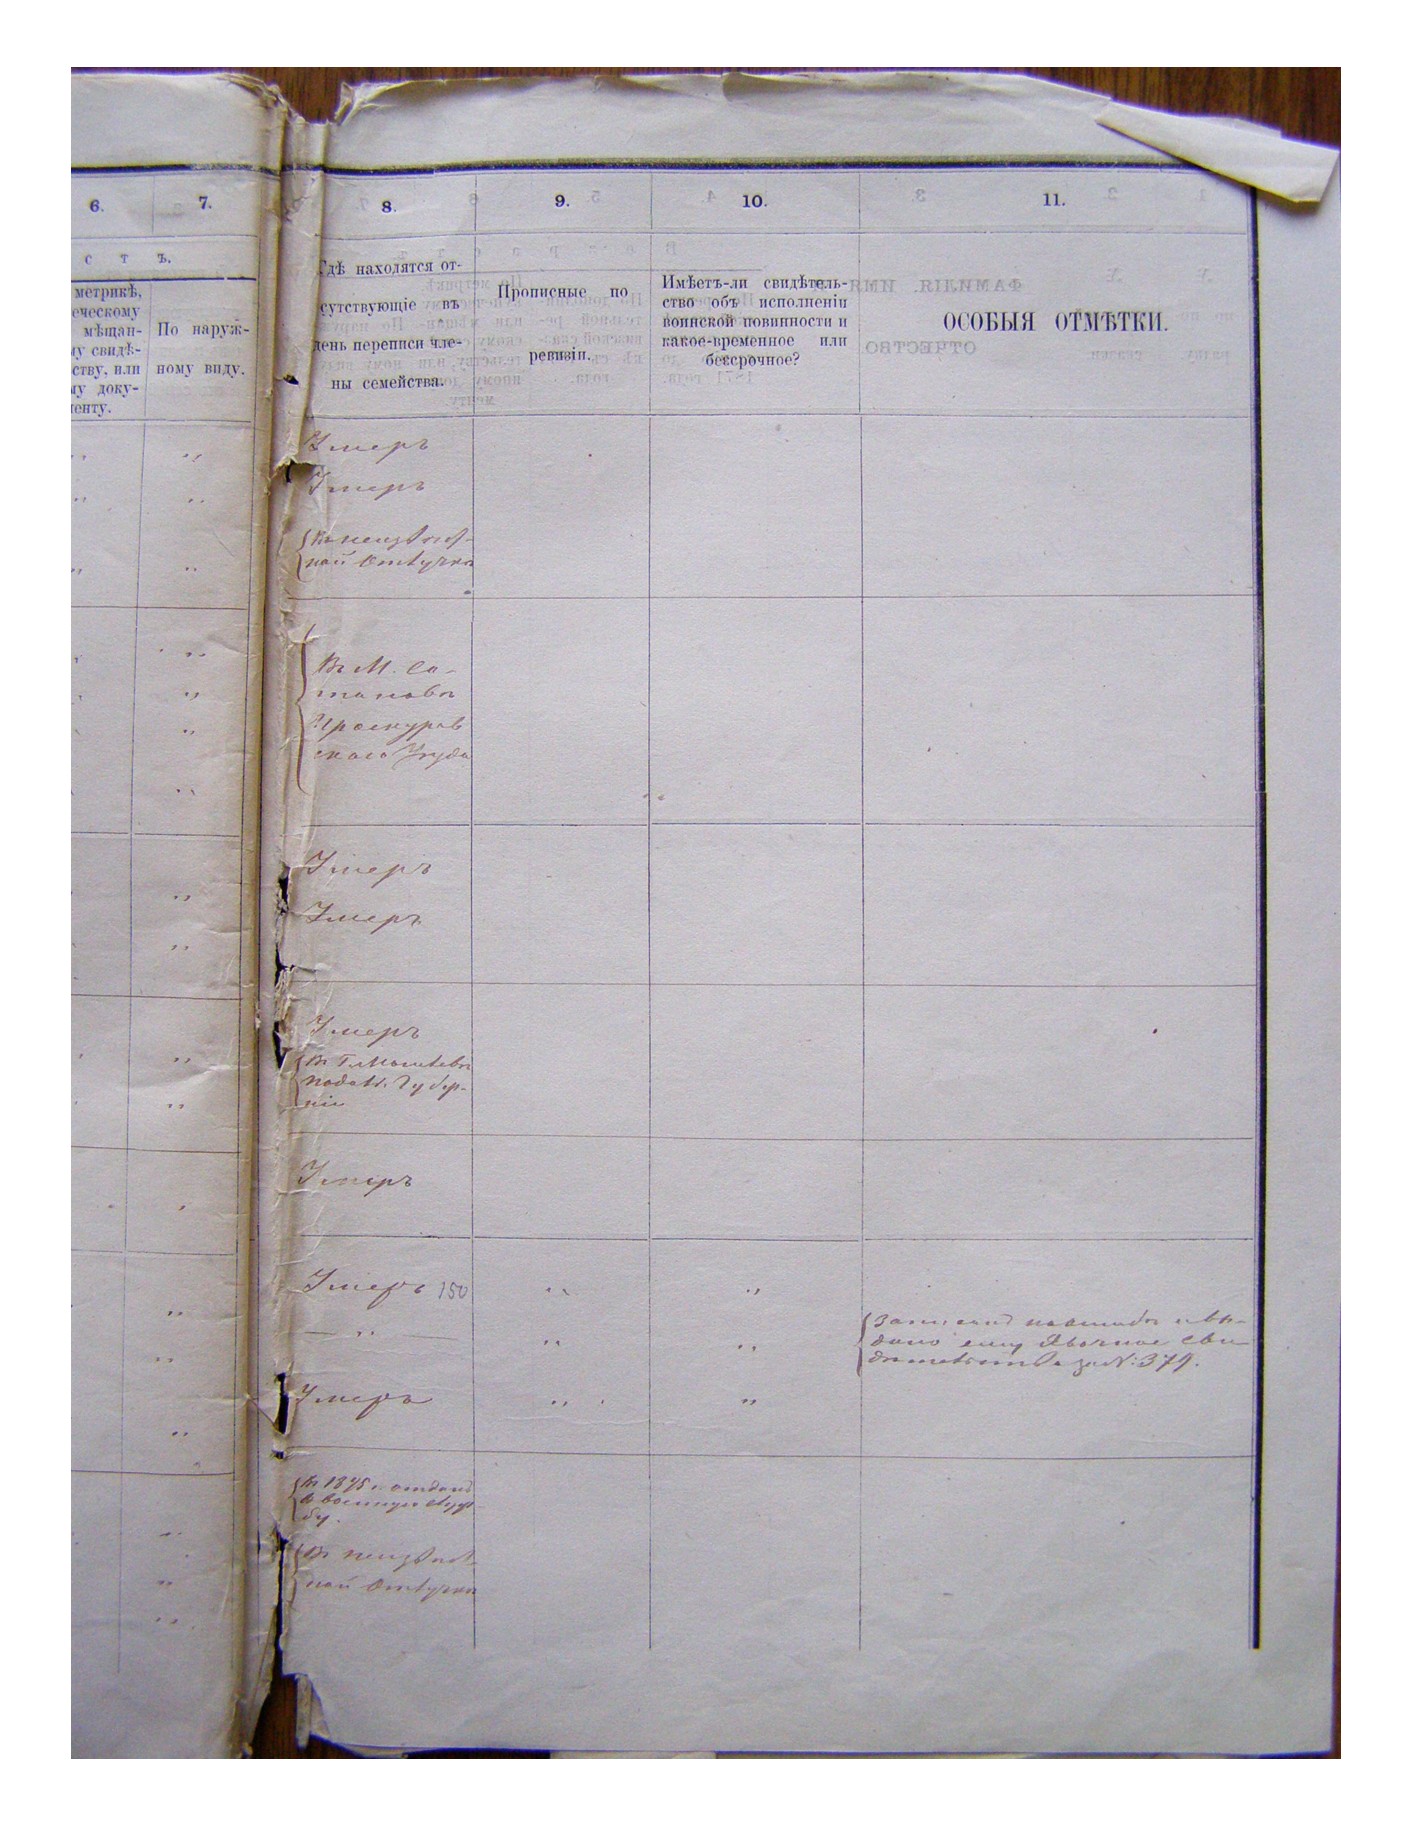 6.
7.
8.
9.
10.
11.
с т ъ.
метрикѣ,
еческому
мѣщан-
му свидѣ-
ству, или
му доку-
менту.
По наруж-
ному виду.
Гдѣ находятся от-
сутствующіе въ
день переписи чле-
ны семейства.
Прописные по
ревизіи.
Имѣетъ-ли свидѣтель-
ство объ исполненіи
воинской повинности и
какое-временное или
бессрочное?
ОСОБЫЯ ОТМѢТКИ.
Умеръ
Умеръ
Въ неизвѣст-
ной отлучкѣ
Въ М. Са-
тановѣ
Проскуров
скаго Уѣзда
Умеръ
Умеръ
Умеръ
Въ Г. Могилевѣ
Подол. Губер-
ніи
Умеръ
Умеръ 150
— „ —
Записанъ
дано ему явочное сви-
дѣтельство за №: 379.
Умеръ
Въ 1875 г. отданъ
въ военную служ-
бу.
Въ неизвѣст-
ной отлучкѣ